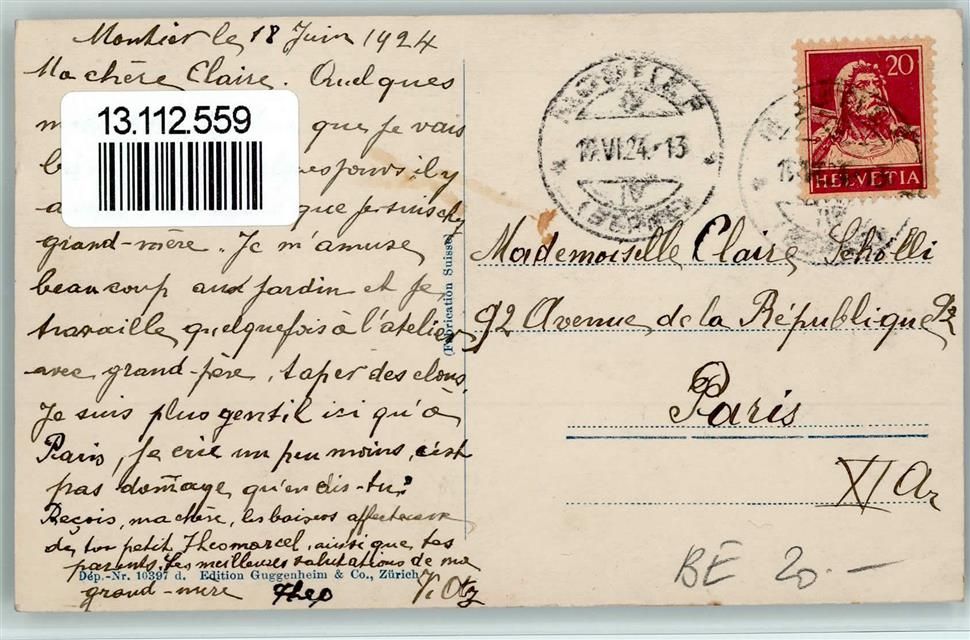 Moutier le 18 Juin 1924
Ma chère Claire. Quelques
13.112.559
que je vais
il y
que je suis chez
grand-mère. Je m'amuse
beaucoup au jardin et je
travaille quelquefois à l'atelier
avec grand-père, taper des clous,
Je suis plus gentil ici qu'à
Paris, je crie un peu moins, c'est
pas domage, qu'en dis-tu?
Reçois, ma chère, les baisers affectueux
de ton petit Theomarcel, ainsi que tes
parents. Les meilleures salutations de ma
grand-mère Theo
Dép.-Nr. 10397 d. Edition Guggenheim & Co., Zürich
(Fabrication Suisse)
VI.24.-13
IV
(BERNE)
20
HELVETIA
Mademoiselle Claire Schölli
92 Avenue de la République 92
Paris
XI Ar
BE 20.—